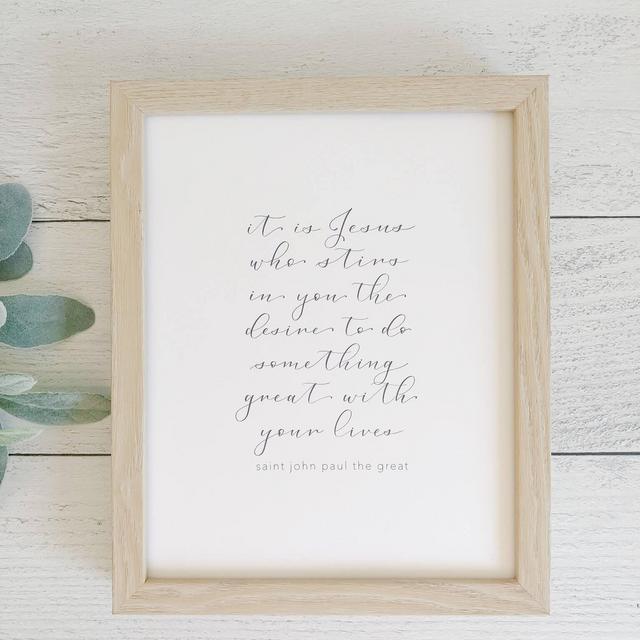 it is Jesus
who stirs
in you the
desire to do
something
great with
your lives
saint john paul the great